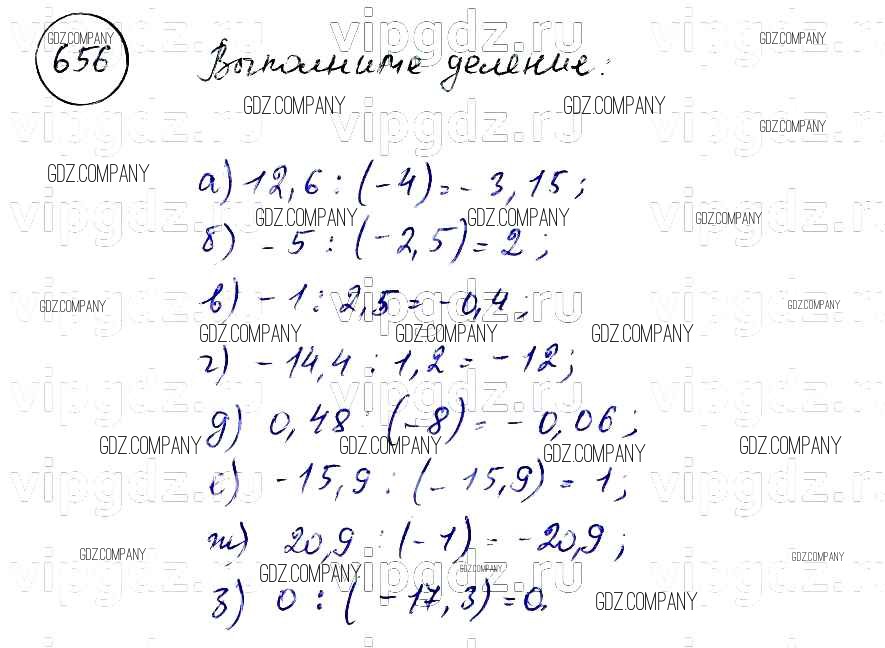 656 Выполните деление:
а) 12,6 : (-4) = - 3,15;
б) - 5 : (-2,5) = 2;
в) - 1 : 2,5 = - 0,4;
г) - 14,4 : 1,2 = - 12;
д) 0,48 : (-8) = - 0,06;
е) - 15,9 : (- 15,9) = 1;
ж) 20,9 : (-1) = -20,9;
з) 0 : ( -17,3) = 0.
vipgdz.ru
GDZ.COMPANY